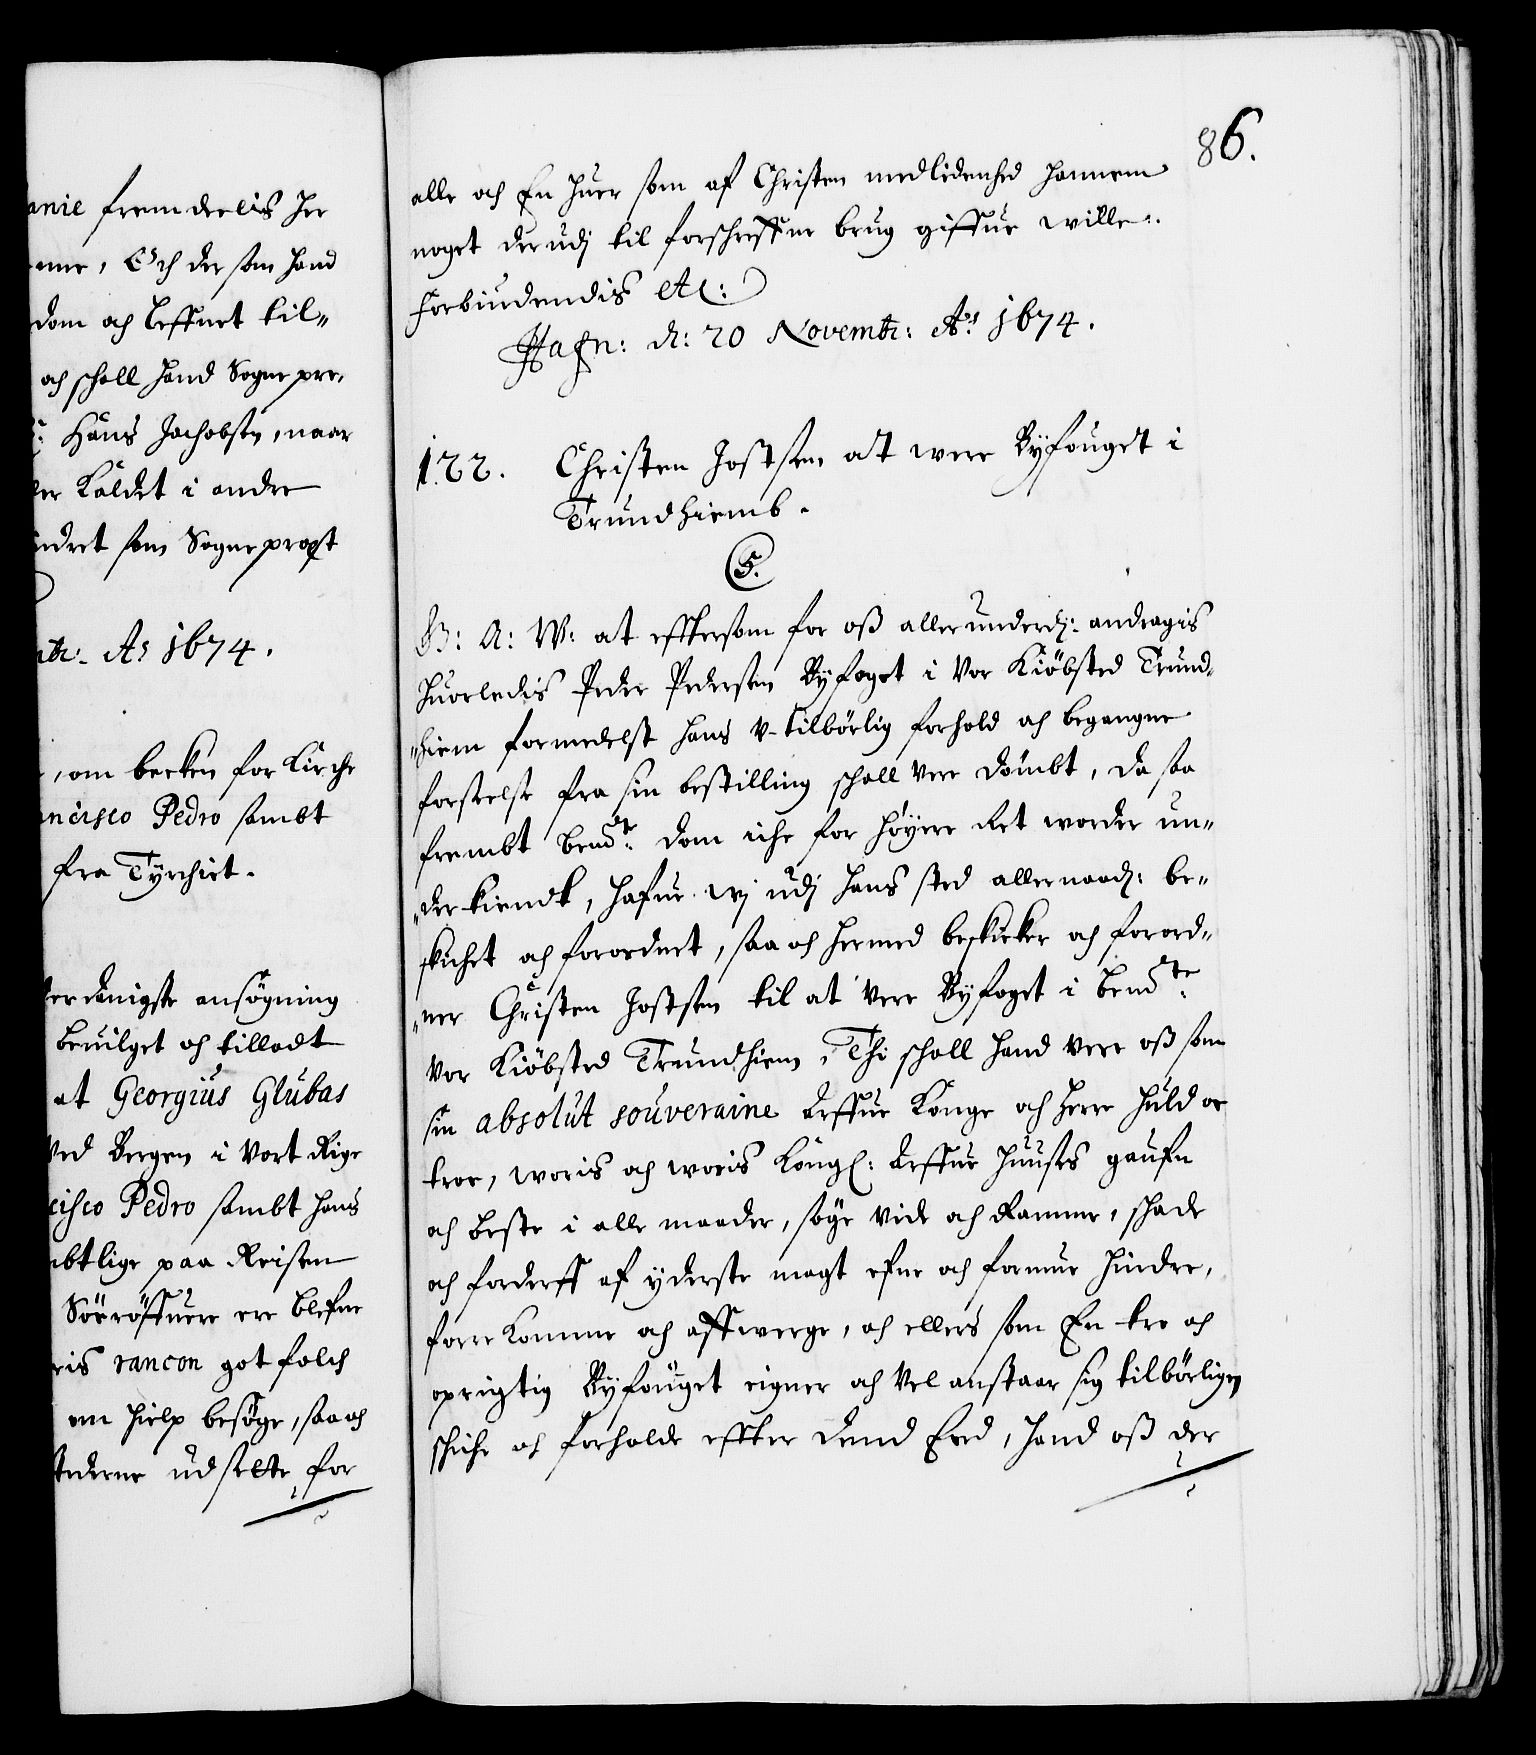 anie fremdelis her
enne, Och dersom hand
dom och leffnet til„
och schall hand Sogne pre„
Hans Jachobsen, naar
ler Kaldet i andre
indret som Sognepræst
A: 1674.
, om becken for Kirche
ncisco Pedro sambt
fra Tÿrchiet.
erdanigste ansögning
beuilget och tilladt
at Georgiüs Glübas
ved Bergen i Vort Rige
cisco Pedro sambt hans
btlige paa Reisen
Söeröffuere ere blefne
ris rancon got folch
om hielp besöge, saa och
stederne udsette for
86.
alle och En huer som af Christen medlidenhed hannem
noget der udj til forschreffne brug giffue wille.
Forbiudendis etc:
Hafn: d: 20 Novembr: A: 1674.
122. Christen Jostsen at were Byfouget i
Trundhiemb.
C5.
G: A: W: at efftersom for oß allerunderd: andragis
huorledis Peder Pedersen Byfoget i Vor Kiöbsted Trund„
„hiem formedelst hans v-tilbörlig forhold och begangne
forseelse fra sin bestilling schall vere dömbt, da saa
frembt bemte dom iche for höyere Ret worder un„
„derkiendt, hafue wj udj hans sted allernaad: be„
skichet och forordnet, saa och hermed beskicker och forord„
„ner Christen Jostsen til at vere Byfoget i bemte
vor Kiöbsted Trundhiem, Thi schall hand vere oß som
sin absolut souveraine Arffue Konge och Herre huld oc
troe, woris och woris Kongl: Arffue Huuses gaufn
och beste i alle maader, söge vide och Ramme, schade
och forderff af ÿderste magt efne och formue hindre,
forre komme och affwerge, och ellers som En tro och
oprigtig Byfouget eigner och vel anstaar sig tilbörligen
schiche och forholde effter dend Eed, hand oß der